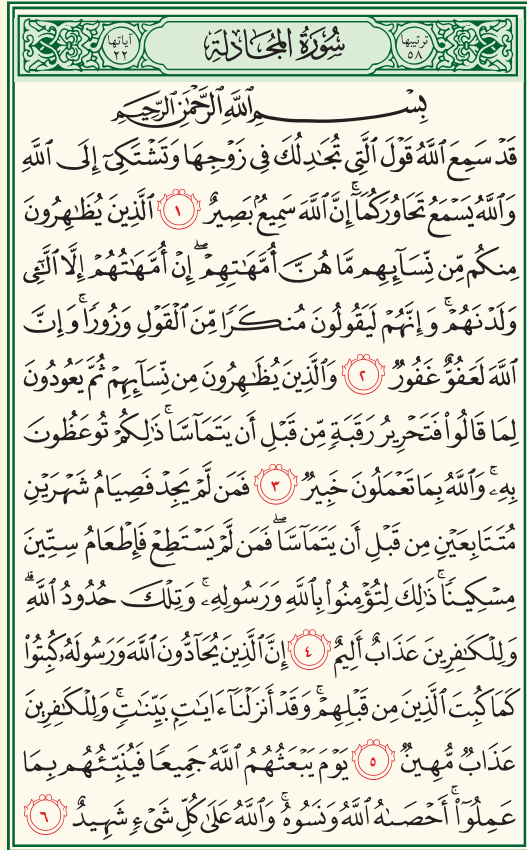 ترتيبها ٥٨ سُورَةُ المُجَادلَةِ آياتها ٢٢
بِسۡمِ ٱللَّهِ ٱلرَّحۡمَٰنِ ٱلرَّحِيمِ
قَدۡ سَمِعَ ٱللَّهُ قَوۡلَ ٱلَّتِي تُجَٰدِلُكَ فِي زَوۡجِهَا وَتَشۡتَكِيٓ إِلَى ٱللَّهِ
وَٱللَّهُ يَسۡمَعُ تَحَاوُرَكُمَآۚ إِنَّ ٱللَّهَ سَمِيعُۢ بَصِيرٌ ١ ٱلَّذِينَ يُظَٰهِرُونَ
مِنكُم مِّن نِّسَآئِهِم مَّا هُنَّ أُمَّهَٰتِهِمۡۖ إِنۡ أُمَّهَٰتُهُمۡ إِلَّا ٱلَّٰٓـِٔي
وَلَدۡنَهُمۡۚ وَإِنَّهُمۡ لَيَقُولُونَ مُنكَرٗا مِّنَ ٱلۡقَوۡلِ وَزُورٗاۚ وَإِنَّ
ٱللَّهَ لَعَفُوٌّ غَفُورٞ ٢ وَٱلَّذِينَ يُظَٰهِرُونَ مِن نِّسَآئِهِمۡ ثُمَّ يَعُودُونَ
لِمَا قَالُواْ فَتَحۡرِيرُ رَقَبَةٖ مِّن قَبۡلِ أَن يَتَمَآسَّاۚ ذَٰلِكُمۡ تُوعَظُونَ
بِهِۦۚ وَٱللَّهُ بِمَا تَعۡمَلُونَ خَبِيرٞ ٣ فَمَن لَّمۡ يَجِدۡ فَصِيَامُ شَهۡرَيۡنِ
مُتَتَابِعَيۡنِ مِن قَبۡلِ أَن يَتَمَآسَّاۖ فَمَن لَّمۡ يَسۡتَطِعۡ فَإِطۡعَامُ سِتِّينَ
مِسۡكِينٗاۚ ذَٰلِكَ لِتُؤۡمِنُواْ بِٱللَّهِ وَرَسُولِهِۦۚ وَتِلۡكَ حُدُودُ ٱللَّهِۗ
وَلِلۡكَٰفِرِينَ عَذَابٌ أَلِيمٌ ٤ إِنَّ ٱلَّذِينَ يُحَآدُّونَ ٱللَّهَ وَرَسُولَهُۥ كُبِتُواْ
كَمَا كُبِتَ ٱلَّذِينَ مِن قَبۡلِهِمۡۚ وَقَدۡ أَنزَلۡنَآ ءَايَٰتِۭ بَيِّنَٰتٖۚ وَلِلۡكَٰفِرِينَ
عَذَابٞ مُّهِينٞ ٥ يَوۡمَ يَبۡعَثُهُمُ ٱللَّهُ جَمِيعٗا فَيُنَبِّئُهُم بِمَا
عَمِلُوٓاْۚ أَحۡصَىٰهُ ٱللَّهُ وَنَسُوهُۚ وَٱللَّهُ عَلَىٰ كُلِّ شَيۡءٖ شَهِيدٌ ٦